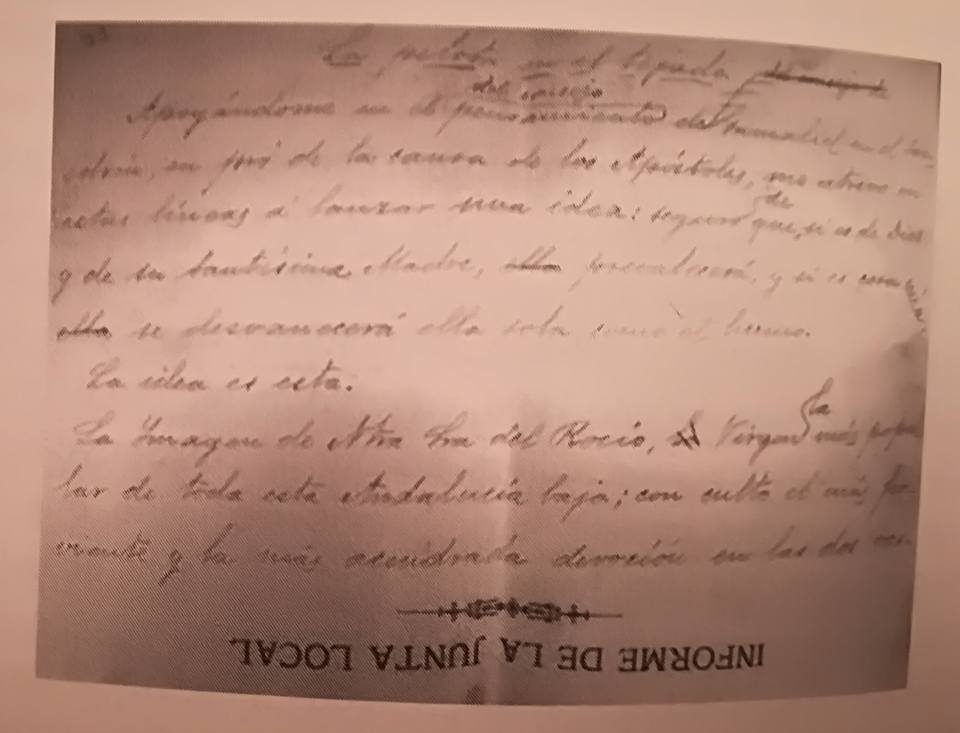 La pelota en el tejado
del consejo
Apoyándome en el pensamiento de Gamaliel en el
en pró de la causa de los Apóstoles, me atrevo en
estas líneas á lanzar una idea: seguro de que, si es de Dios
y de su Santísima Madre, ella prevalecerá, y si es cosa mía,
ella se desvanecerá ella sola como el humo.
La idea es esta.
La Imagen de Ntra Sra del Rocío, la Virgen más popu
lar de toda esta Andalucía baja; con culto el más fer-
viente y la más acendrada devoción en las dos
INFORME DE LA JUNTA LOCAL